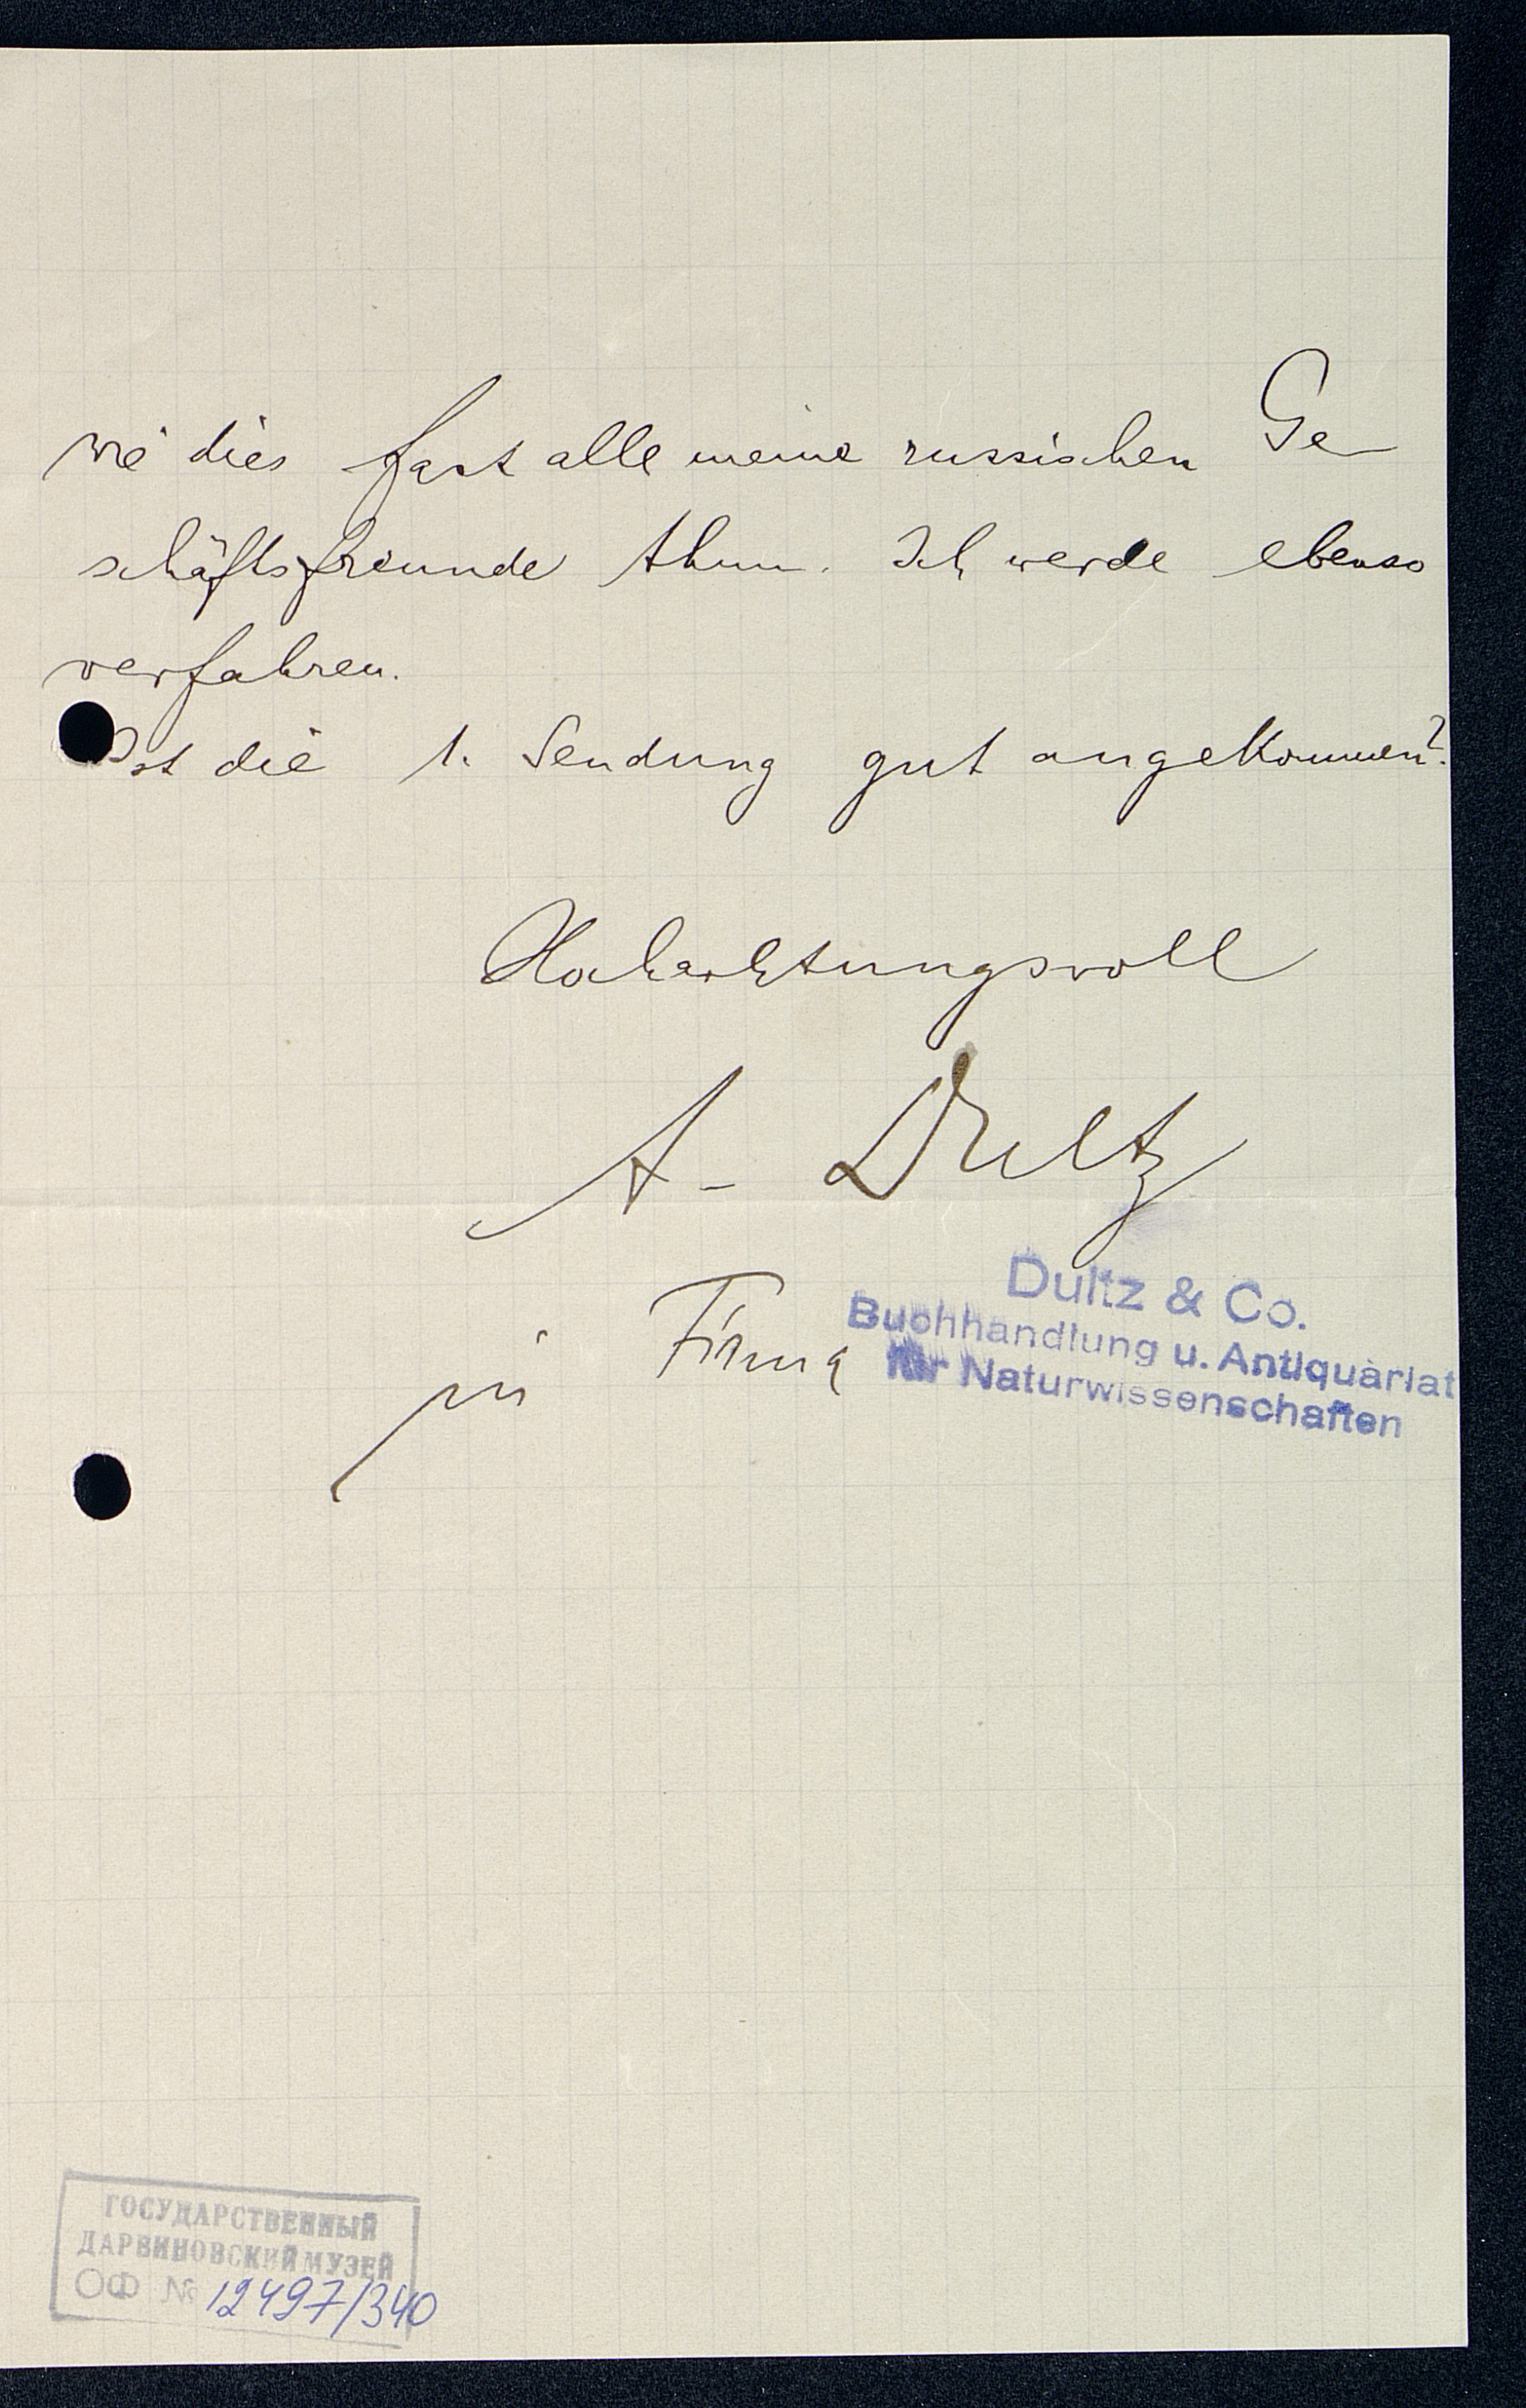 wie dies fast alle meine russischen Ge-
schäftsfreunde thun. Ich werde ebenso
verfahren.
Ist die 1. Sendung gut angekommen?
Hochachtungsvoll
A. Dultz
in Firma
Dultz & Co.
Buchhandlung u. Antiquariat
für Naturwissenschaften
ГОСУДАРСТВЕННЫЙ
ДАРВИНОВСКИЙ МУЗЕЙ
ОФ № 12497/340